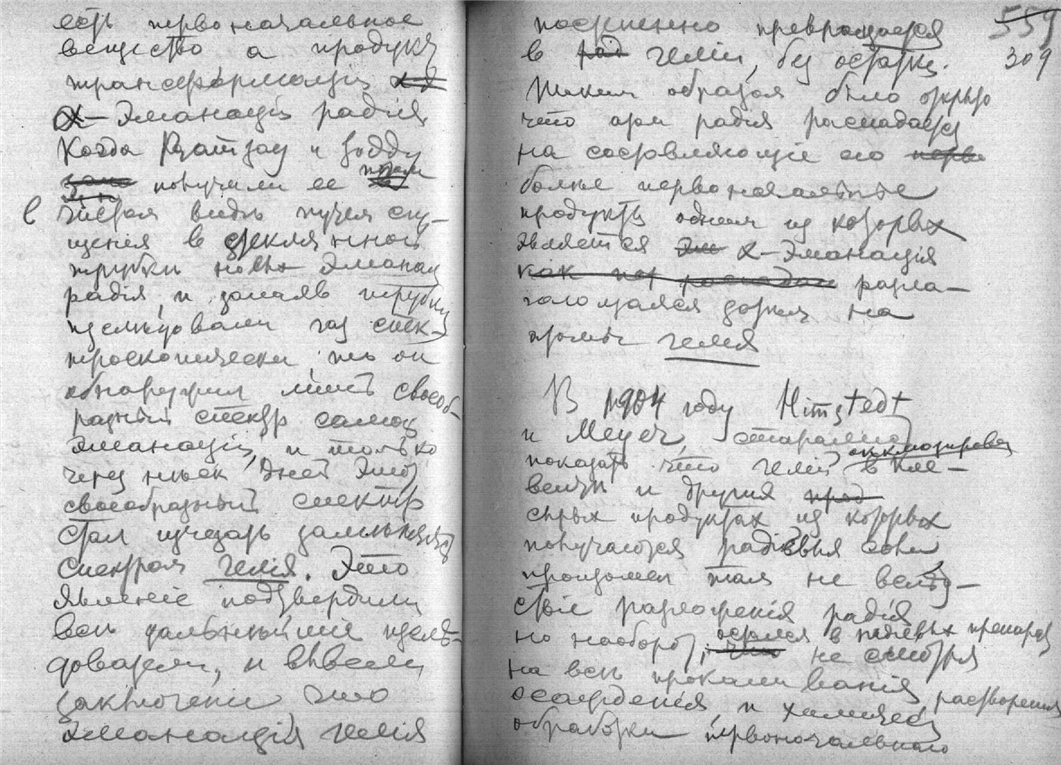 есть первоначальное
вещество а продукт
трансформации
α-Эманаціи радія
Когда Рамзау и Зодду
получили ее
в чистом виде путем сгу-
щения в стеклянной
трубки Эманац
радія, и запаяв трубку
изследовали газ спек-
троскопически, то он
обнаружил лишь своеоб-
разный спектр самой
Эманаціи, и только
через нѣск дней Этот
своеобразный спектр
стал изчезать заменяясь
спектром гелія. Это
явленіе подтвердили
всѣ дальнѣйшіе изслѣ-
дователи, и вывели
заключение что
Эманація гелія
постепенно превращается
в гелій, без остатка.
Таким образом было открыто
что атом радія распадается
на составляющіе его
болѣе первоначальные
продукты одним из которых
является α-Эманація
разла-
гающаяся дальше на
атомы гелия
559
309
В 1904 году Himstedt
и Meyer, старались
показать что гелий окклюдирован
в кле-
веитѣ и других
сырых продуктах из которых
получаются радіевыя соли
произошел там не вслѣд-
ствіе разложенія радія
но наоборот, остался в радіевых препарат
не смотря
на всѣ прокаливанія растворения
осаждения и химическ
обработки первоначального